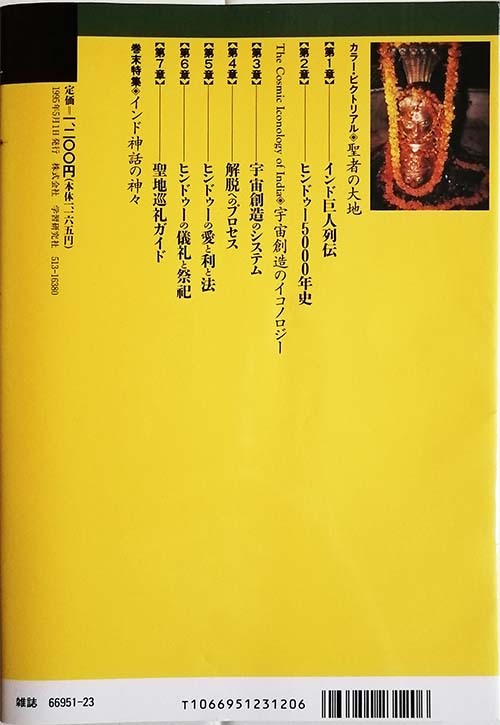 カラー・ピクトリアル◈聖者の大地
【第1章】インド巨人列伝
【第2章】ヒンドゥー5000年史
The Cosmic Iconology of India◈宇宙創造のイコノロジー
【第3章】宇宙創造のシステム
【第4章】解脱へのプロセス
【第5章】ヒンドゥーの愛と利と法
【第6章】ヒンドゥーの儀礼と祭祀
【第7章】聖地巡礼ガイド
巻末特集◈インド神話の神々
定価=一、二〇〇円(本体一、一六五円)
1995年5月1日発行 株式会社 学習研究社 513-16380
雑誌 66951-23
T1066951231206